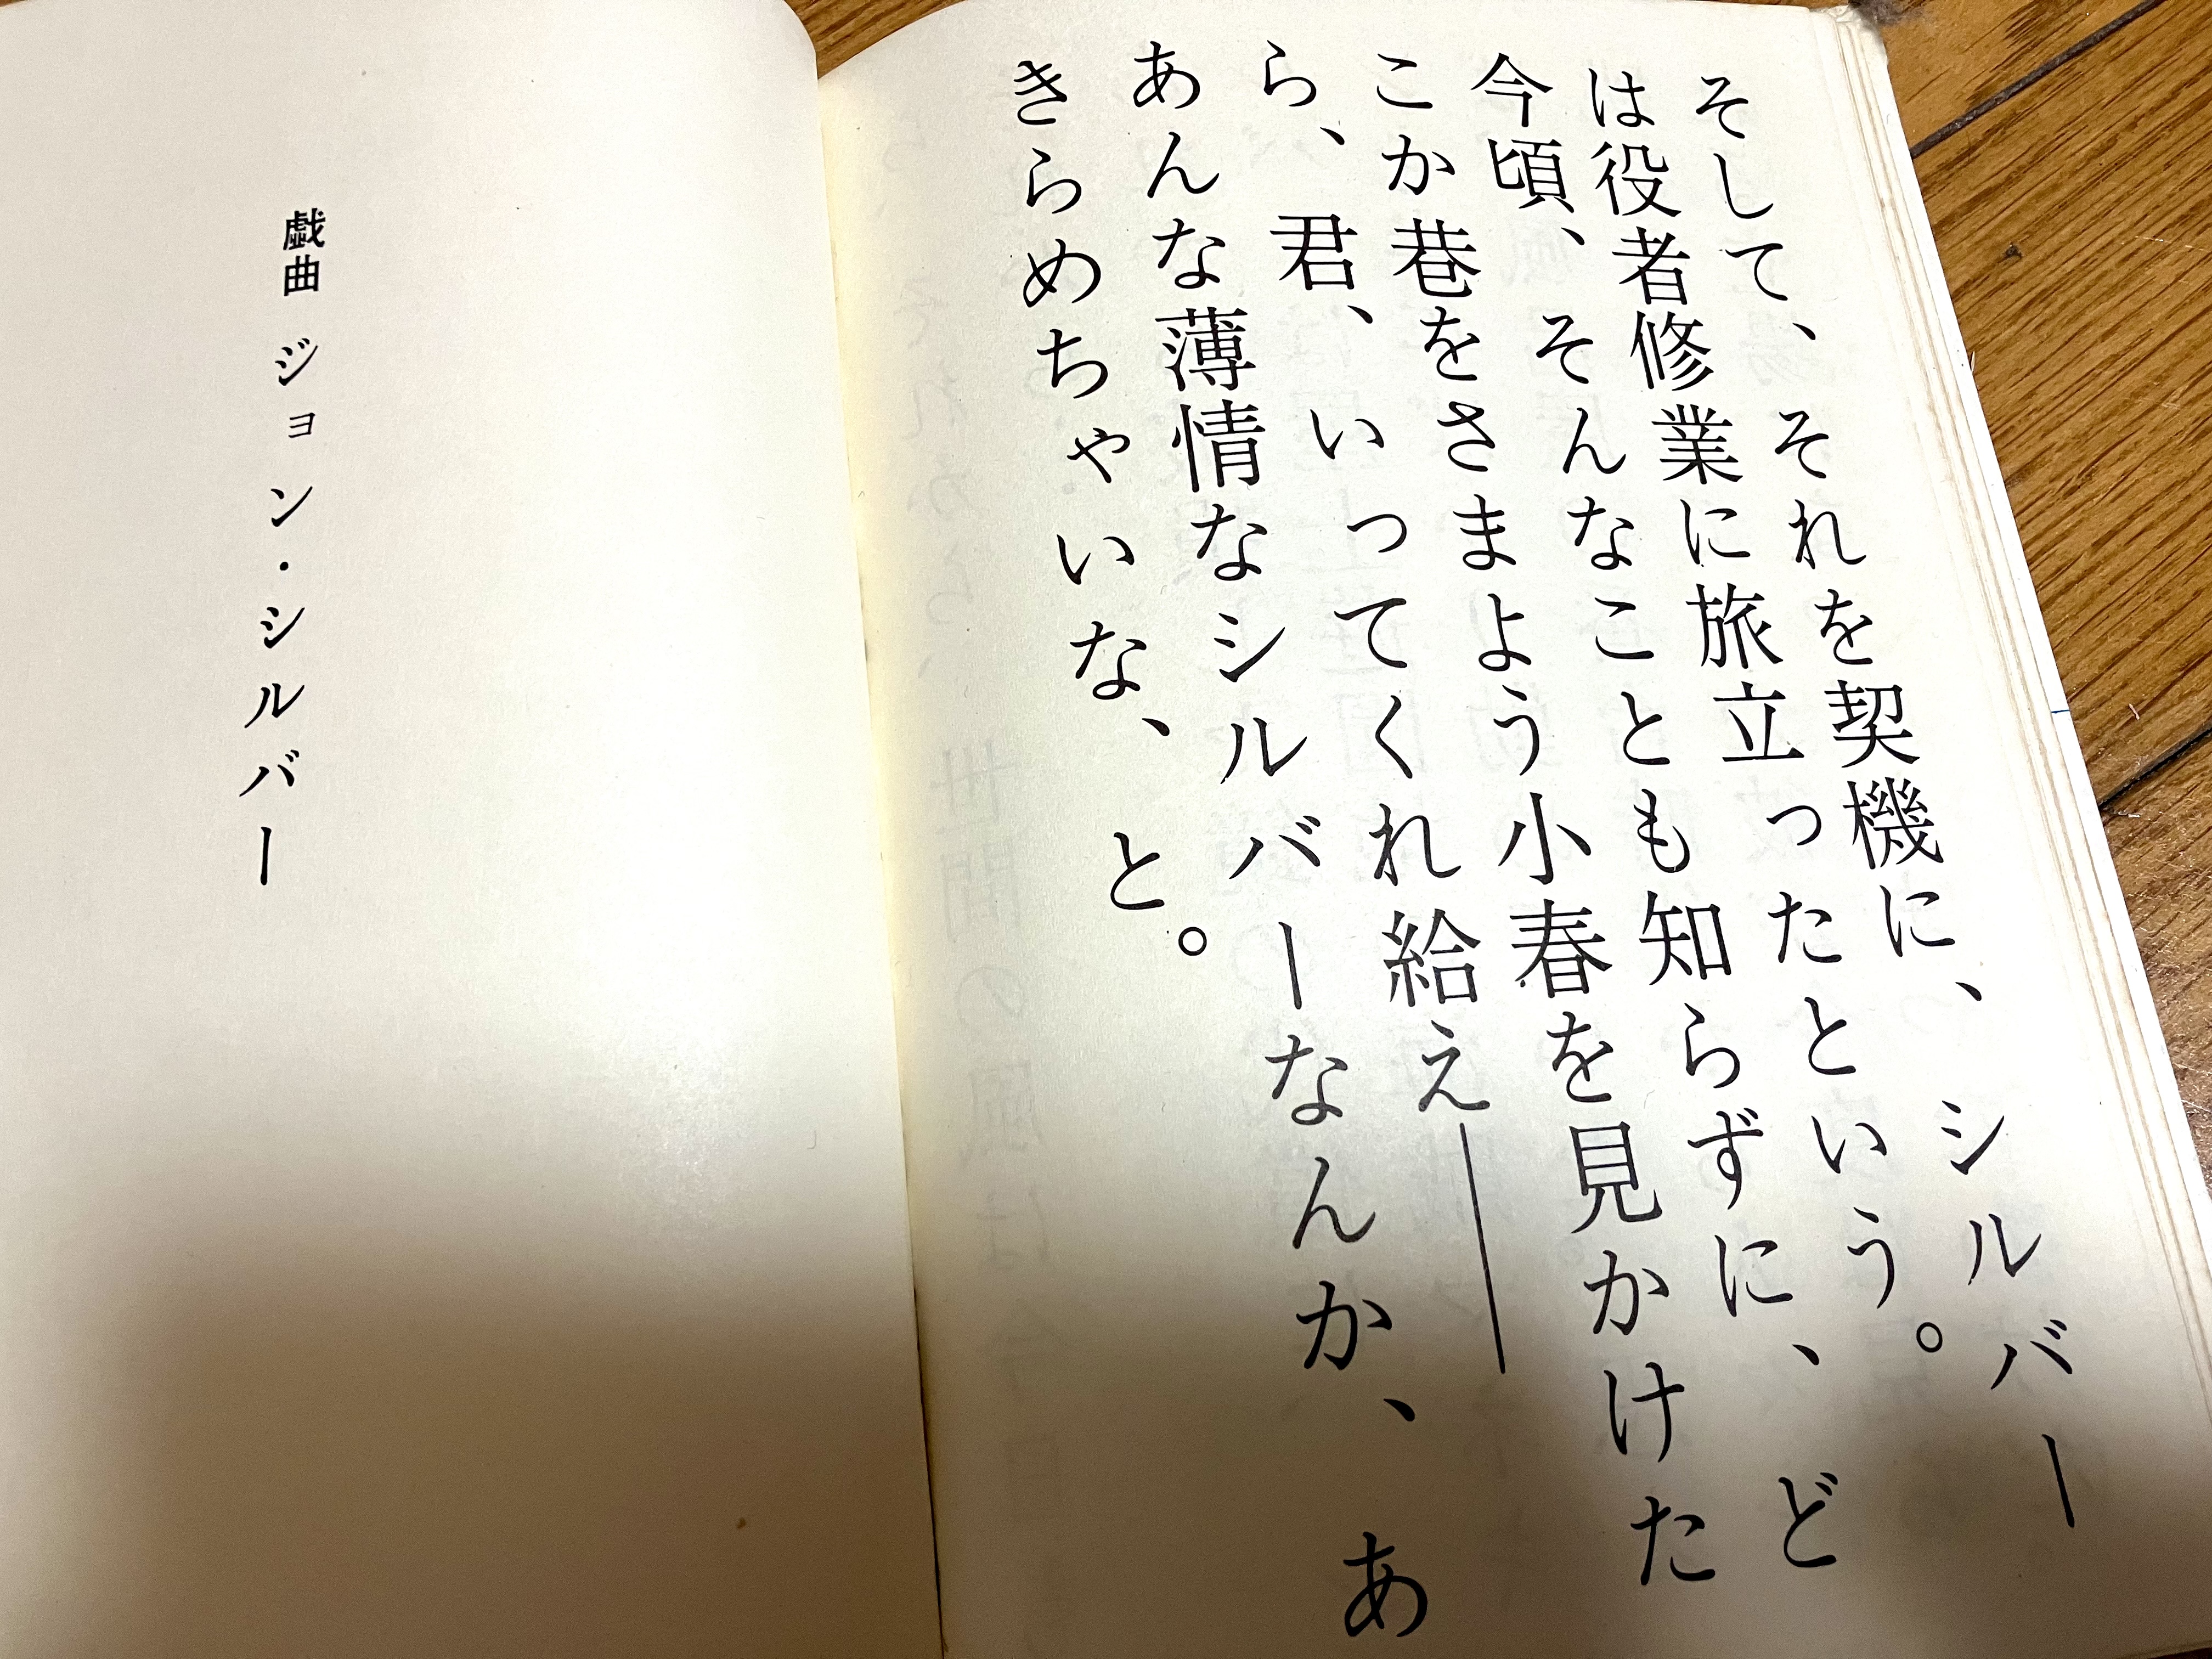 そして、それを契機に、シルバー
は役者修業に旅立ったという。
今頃、そんなことも知らずに、ど
こか巷をさまよう小春を見かけた
ら、君、いってくれ給え──
あんな薄情なシルバーなんか、あ
きらめちゃいな、と。
戯曲 ジョン・シルバー